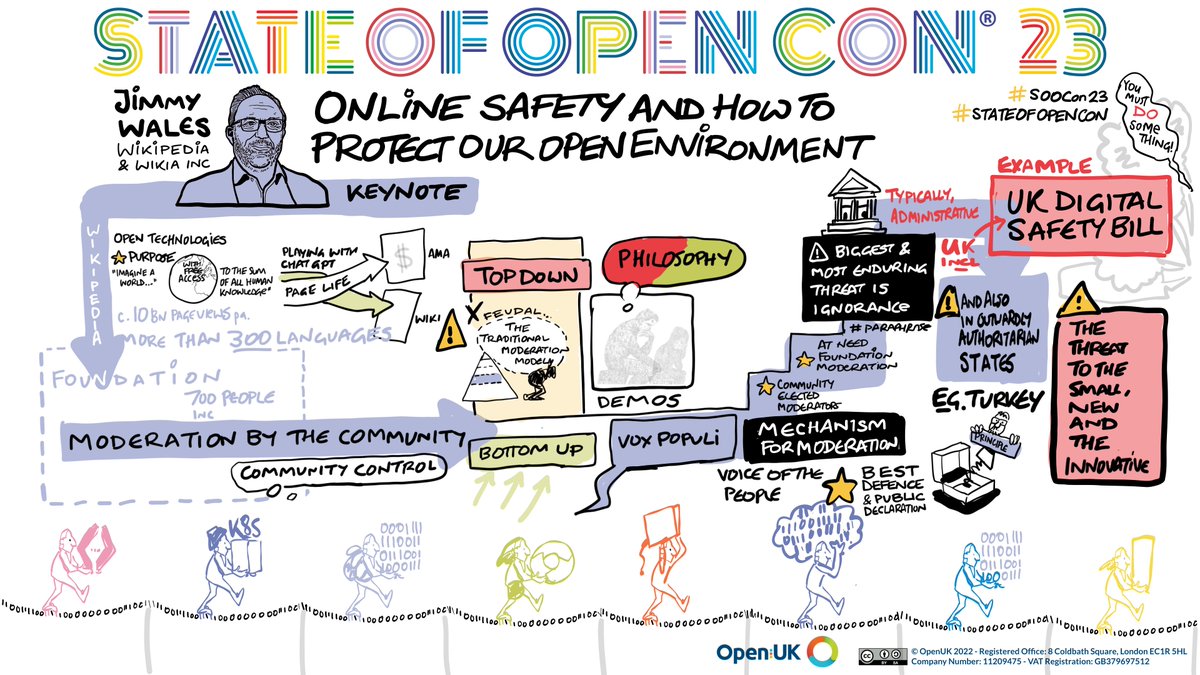 STATE OF OPEN CON® 23
JIMMY
WALES
WIKIPEDIA
& WIKIA INC
ONLINE SAFETY AND HOW TO
PROTECT OUR OPEN ENVIRONMENT
#SOOCon23
#STATEOFOPENCON
YOU
MUST
DO
SOME
THING!
KEYNOTE
WIKIPEDIA
OPEN TECHNOLOGIES
PURPOSE
"IMAGINE A
WORLD..."
WITH
FREE
ACCESS
TO THE SUM
OF ALL HUMAN
KNOWLEDGE"
PLAYING WITH
CHATGPT
PAGE LIFE
$
AMA
WIKI
C. 10 BN PAGEVIEWS PA.
MORE THAN 300 LANGUAGES
FOUNDATION
700 PEOPLE
INC
MODERATION BY THE COMMUNITY
COMMUNITY CONTROL
TOP DOWN
X FEUDAL..
THE
TRADITIONAL
MODERATION
MODEL
BOTTOM UP
PHILOSOPHY
DEMOS
VOX POPULI
TYPICALLY,
ADMINISTRATIVE
BIGGEST &
MOST ENDURING
THREAT IS
IGNORANCE
#PARAPHRASE
AT NEED
FOUNDATION
MODERATION
COMMUNITY
ELECTED
MODERATORS
MECHANISM
FOR MODERATION
VOICE OF THE
PEOPLE
BEST
DEFENCE
& PUBLIC
DECLARATION
EXAMPLE
UK DIGITAL
SAFETY BILL
UK
INCL
AND ALSO
IN OUTWARDLY
AUTHORITARIAN
STATES
EG. TURKEY
PRINCIPLE
THE
THREAT
TO THE
SMALL,
NEW
AND
THE
INNOVATIVE
K8S
0001111
1110011
0111001
0001111
1110011
0111001
OpenUK
© OpenUK 2022 - Registered Office: 8 Coldbath Square, London EC1R 5HL
Company Number: 11209475 - VAT Registration: GB379697512